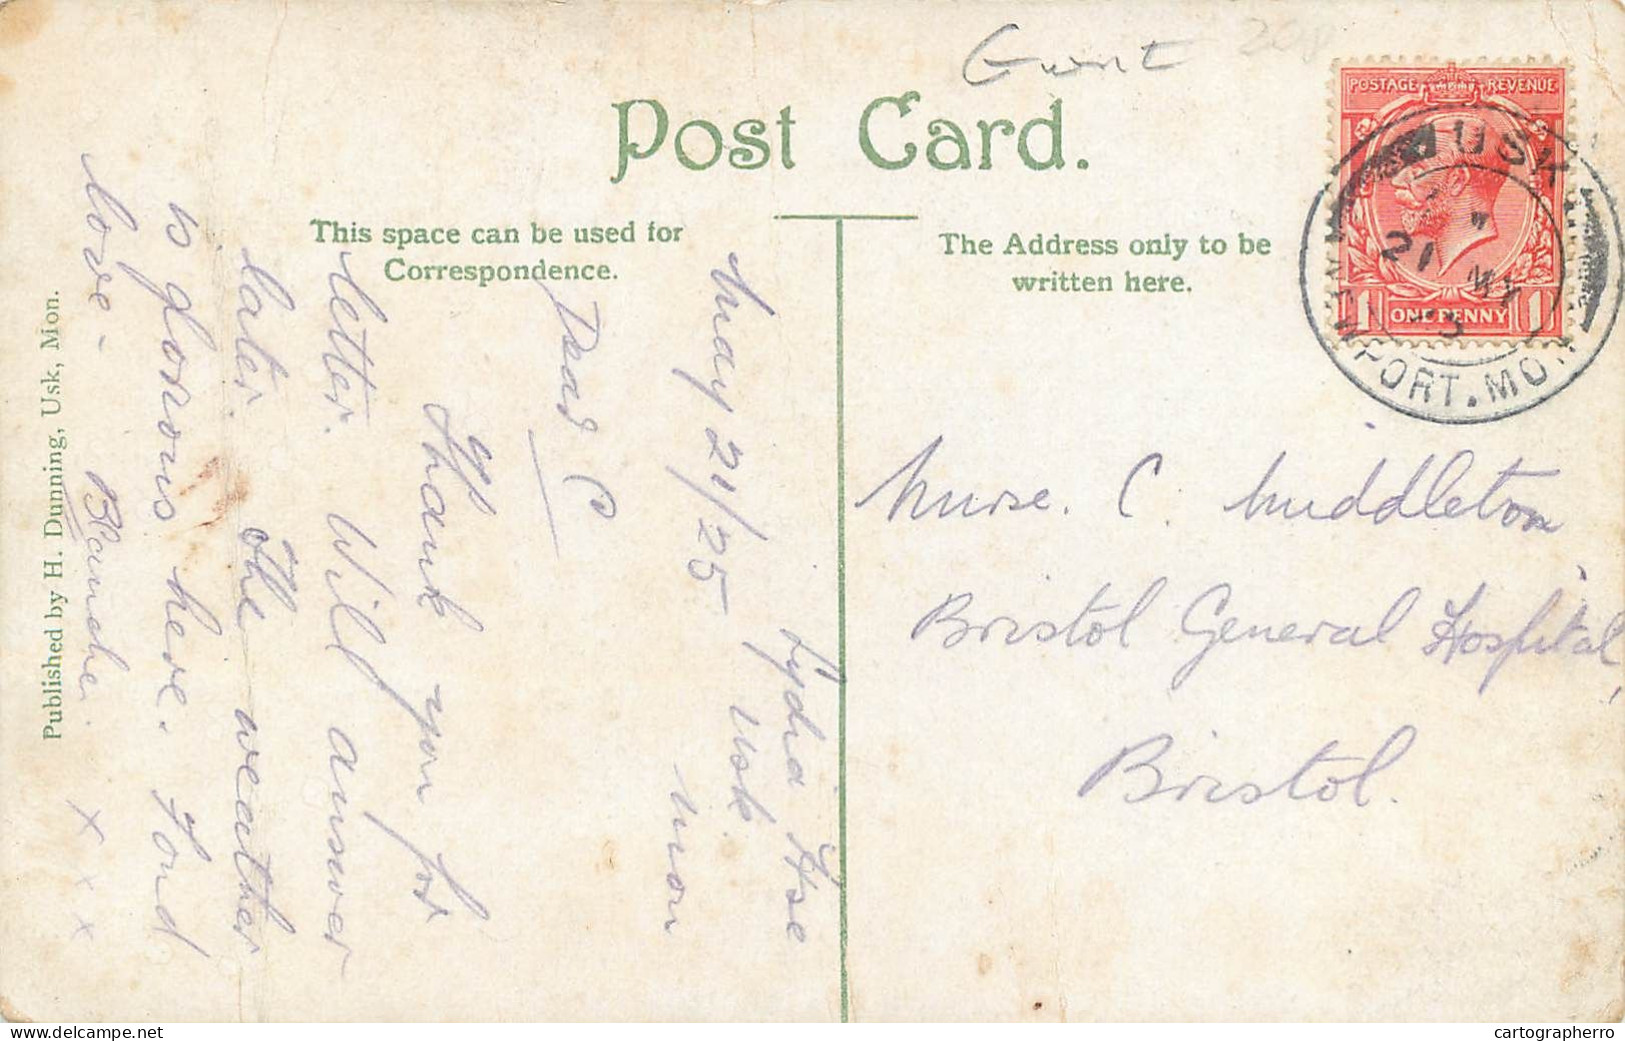 Gwent
20p
Post Card.
This space can be used for
Correspondence.
The Address only to be
written here.
POSTAGE REVENUE
1 ONE PENNY 1
USK
21 MY
NEWPORT. MON
Lydia Hse
Usk.
Mon
May 21/25
Dear C
Thank you for
letter. Will answer
later. The weather
is glorious here. Fond
love - Blanche.
x x x
Nurse. C. Middleton
Bristol General Hospital,
Bristol.
Published by H. Dunning, Usk, Mon.
cartographerro